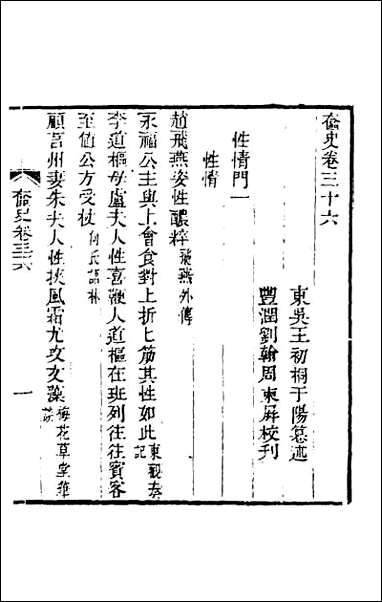 奩史卷三十六
東吳王初桐于陽纂述
豐潤劉翰周東屏校刊
性情門一
性情
趙飛燕姿性醲粹飛燕外傳
永福公主與上會食對上折匕筯其性如此東觀奏記
李道樞母盧夫人性喜鞭人道樞在班列往往賓客
至值公方受杖何氏語林
顧言州妻朱夫人性挾風霜尤攻文藻梅花草堂筆談
奩史卷三六
一